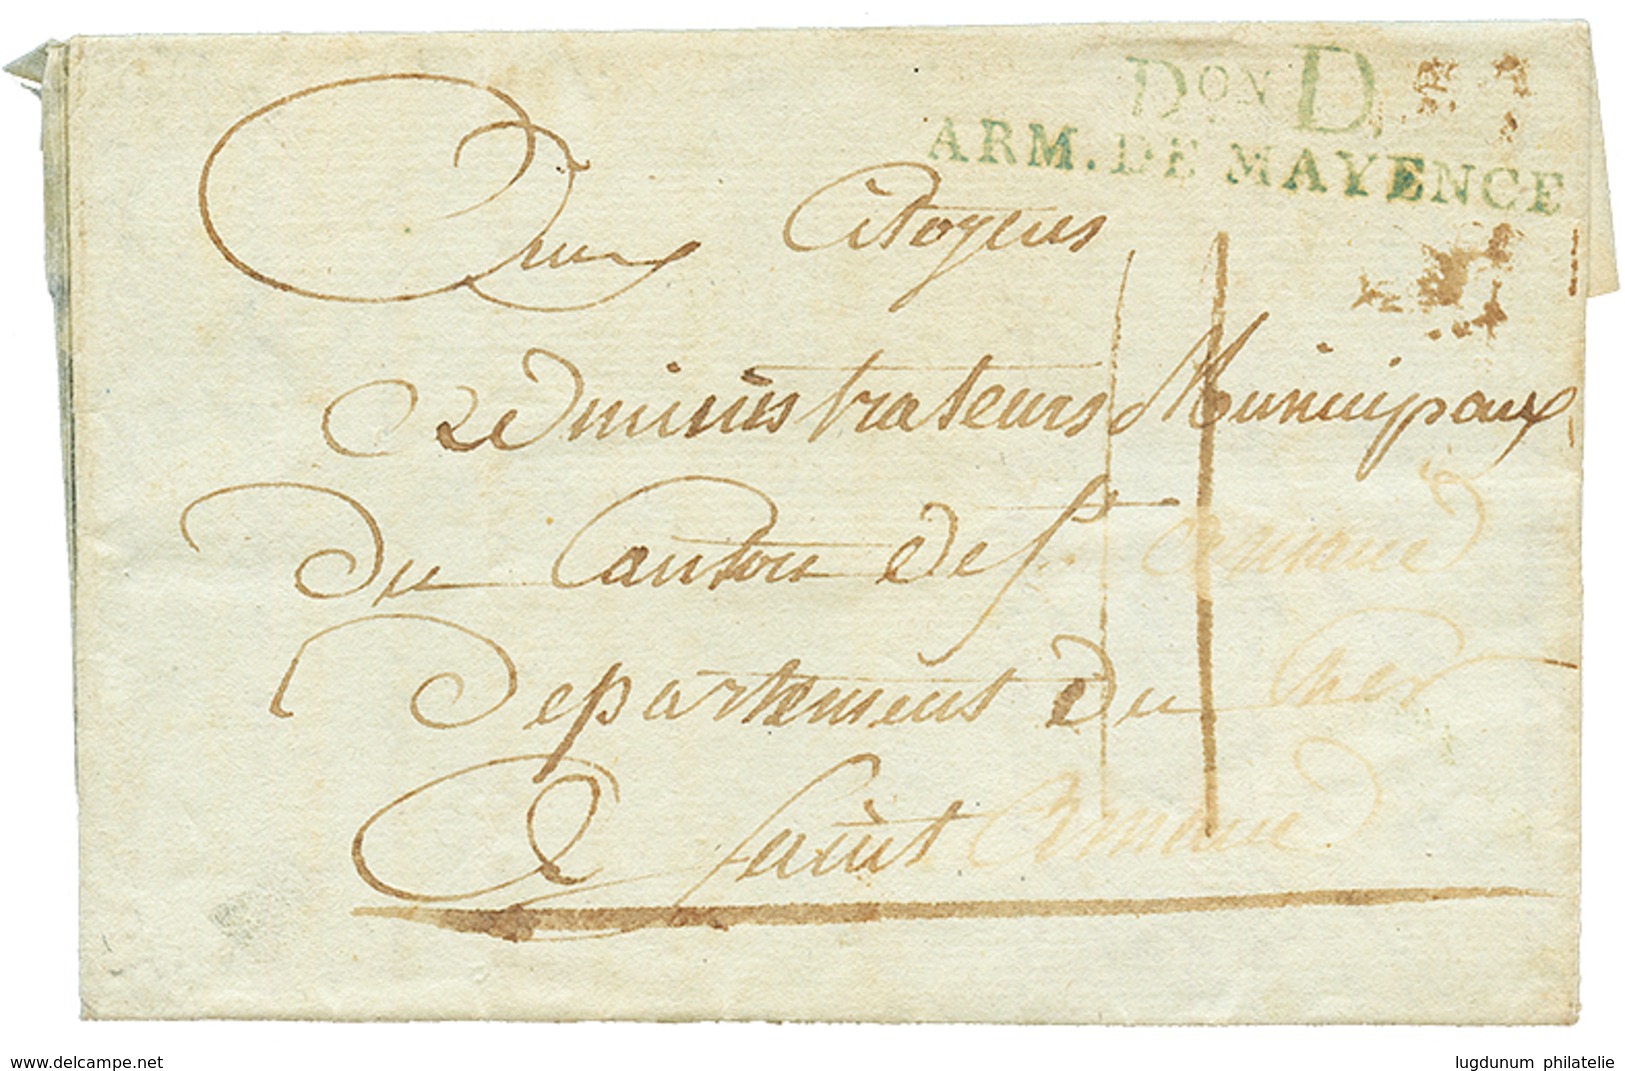 Don D.
ARM. DE MAYENCE
Aux Citoyens
Administrateurs Municipaux
Du Canton de St. Amand
Departement du Cher
A Saint Amand
11
www.delcampe.net
lugdunum philatelie